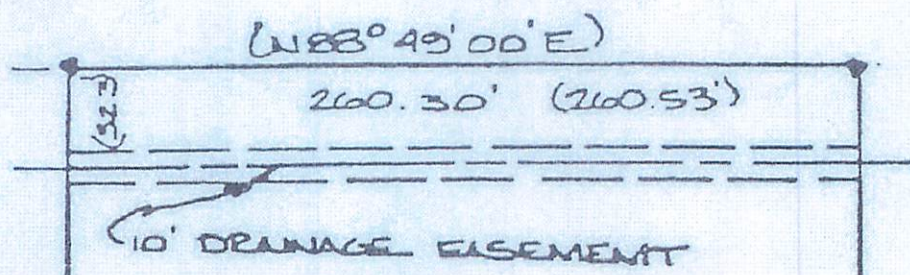 (N88°49'00"E)
260.30' (260.53')
(32.3)
10' DRAINAGE EASEMENT